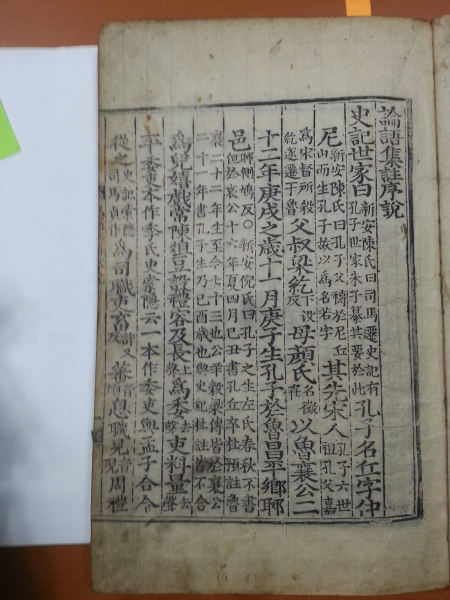 論語集註序說
史記世家曰新安陳氏曰司馬遷史記有孔子世家朱子纂其要於此孔子名丘字仲
尼新安陳氏曰孔子父禱於尼丘山而生孔子故以爲名若字其先宋人孔子六世祖孔父嘉
爲宋督所殺乾遂遷于魯父叔梁紇下沒反母顏氏名徵在以魯襄公二
十二年庚戌之歲十一月庚子生孔子於魯昌平鄕陬
邑陬側鳩反○新安倪氏曰孔子之生左氏春秋不書但於襄公十六年夏四月己丑書孔丘卒杜預註魯
襄二十二年生至今七十三也公羊穀梁傳皆於襄公二十一年書孔子生乃己酉歲也與史記杜註皆不合
爲兒嬉戲常陳俎豆設禮容及長上聲爲委去聲吏料量去聲
平委吏本作季氏史索隱云一本作委吏與孟子合今
從之史記索隱司馬貞作爲司職吏畜許又反蕃音息職見音現周禮